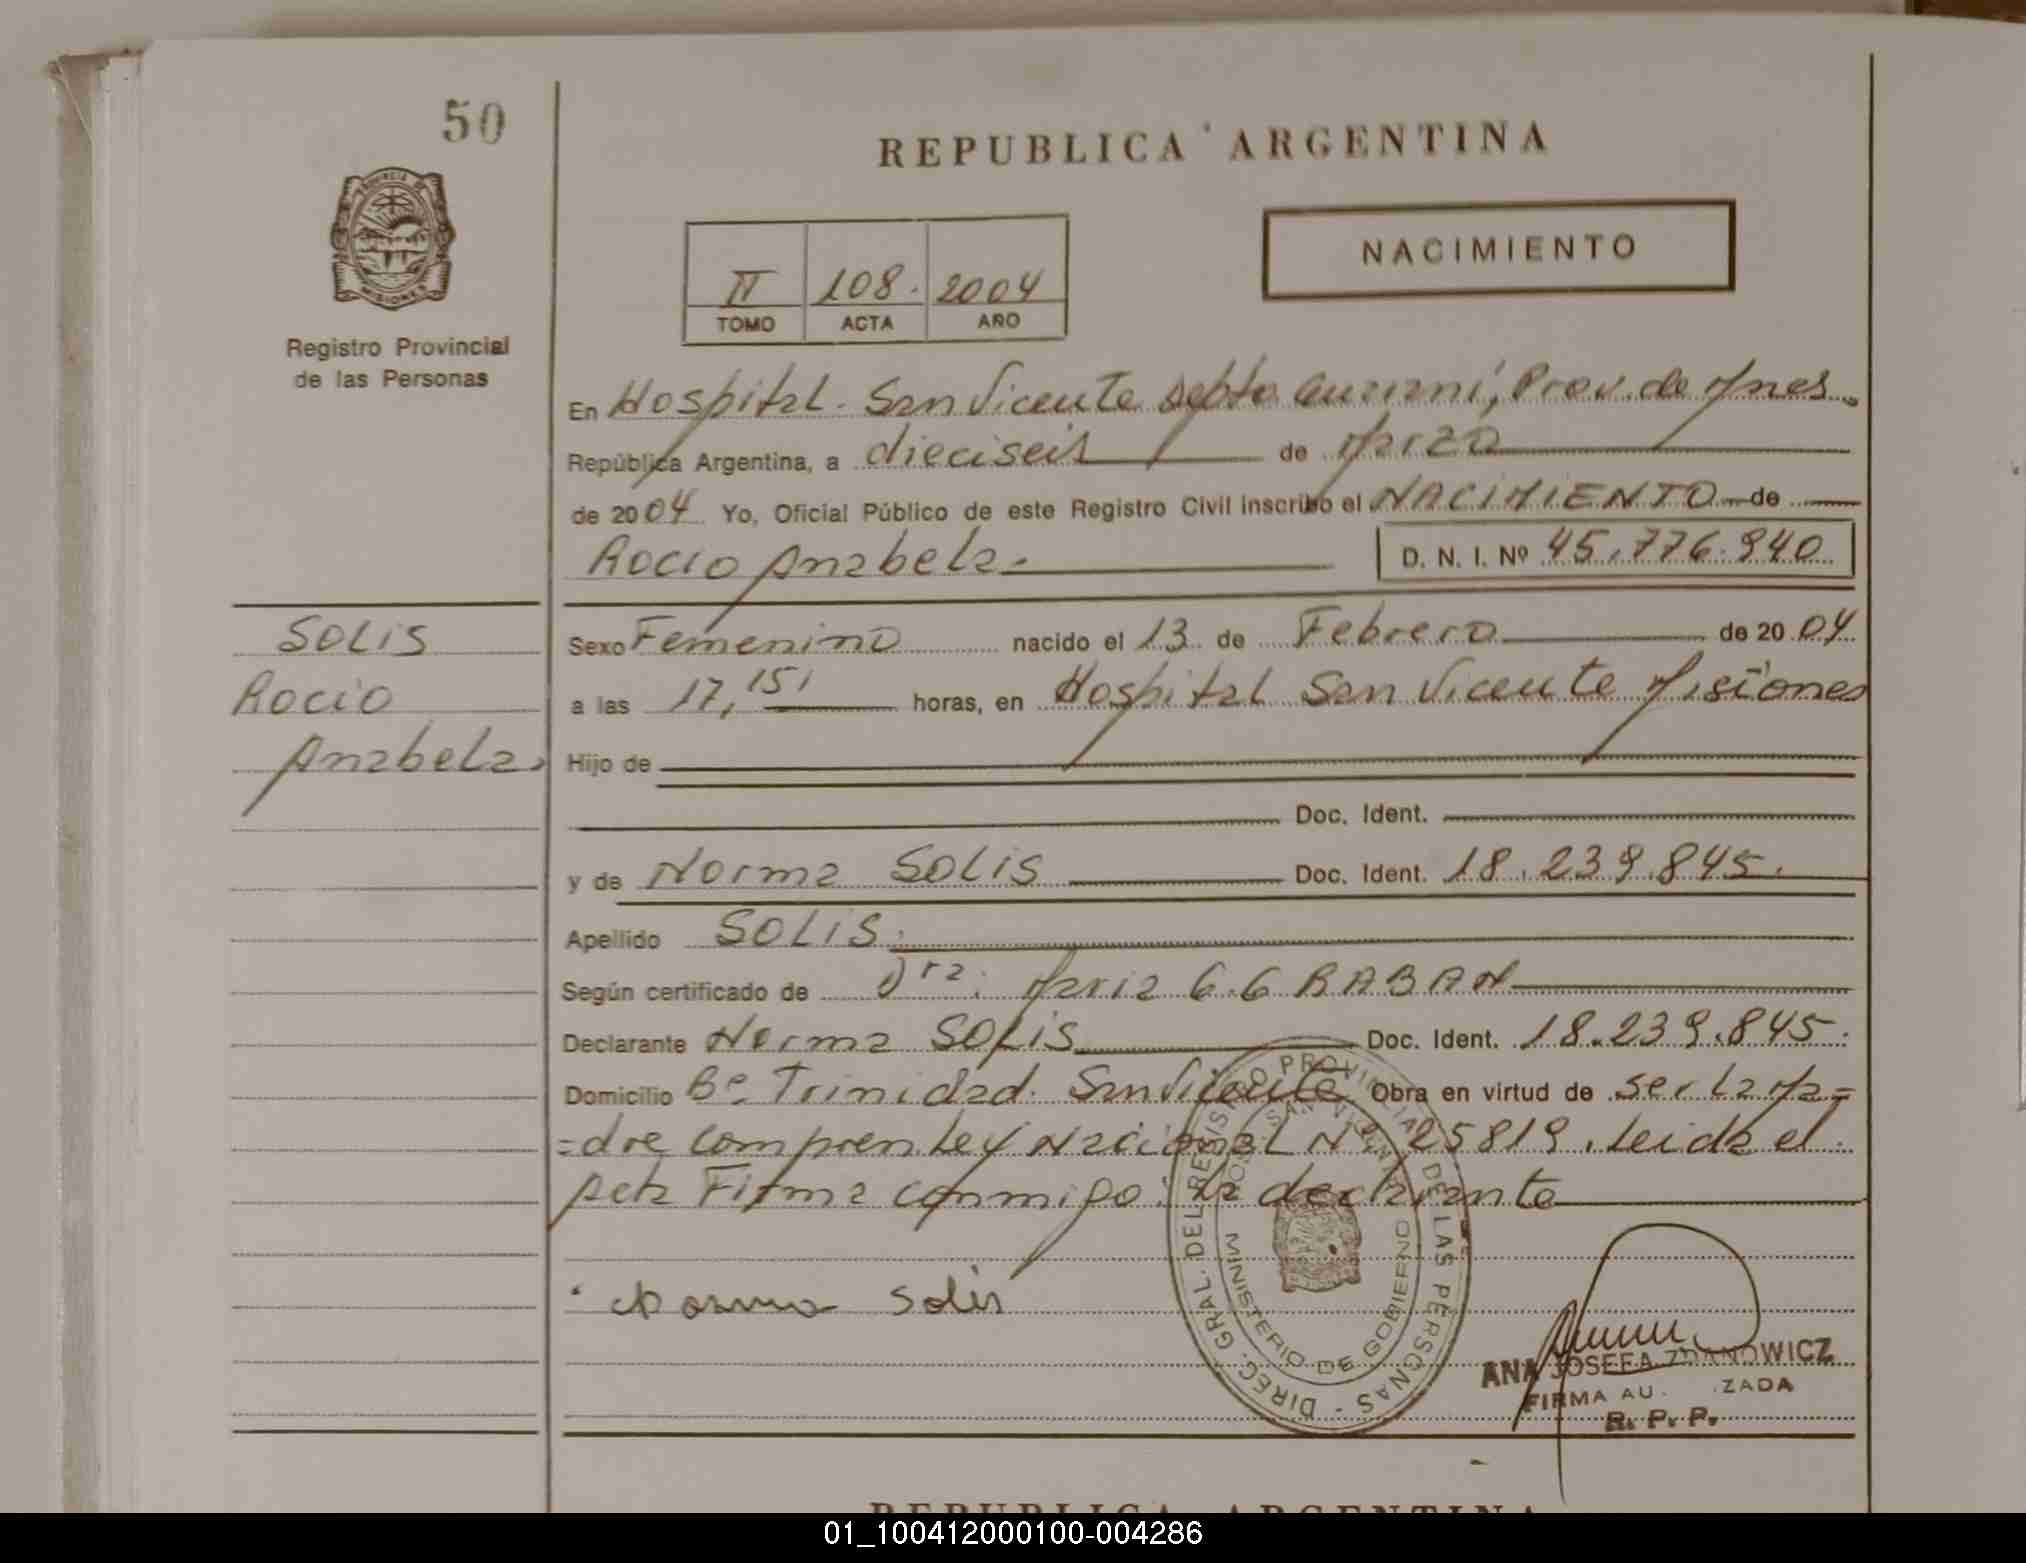 50
REPUBLICA ARGENTINA
NACIMIENTO
II 108. 2004
TOMO ACTA AÑO
PROVINCIA DE
MISIONES
Registro Provincial
de las Personas
En Hospital. San Vicente Depto Guarani, Prov. de Mnes.
República Argentina, a dieciseis de Marzo
de 2004 Yo, Oficial Público de este Registro Civil inscribo el NACIMIENTO de
Rocio Anabela. D. N. I. Nº 45.776.940
SOLIS
Rocio
Anabela.
Sexo Femenino nacido el 13 de Febrero de 2004
a las 17,15' horas, en Hospital San Vicente Misiones
Hijo de
Doc. Ident.
y de Norma SOLIS Doc. Ident. 18.239.845.
Apellido SOLIS.
Según certificado de Dra. Maria G.G RABAN
Declarante Norma SOLIS Doc. Ident. 18.239.845.
Domicilio Bº Trinidad. San Vicente Obra en virtud de ser la Ma=
=dre compren Ley Nacional Nº 25819. Leida el
Acta Firma conmigo: la declarante
Norma Solis
DIREC. GRAL. DEL REGISTRO PROVINCIAL DE LAS PERSONAS -
SAN VICENTE
MINISTERIO DE GOBIERNO
ANA JOSEFA ZDANOWICZ
FIRMA AU ZADA
R. P. P.
REPUBLICA ARGENTINA
01_100412000100-004286